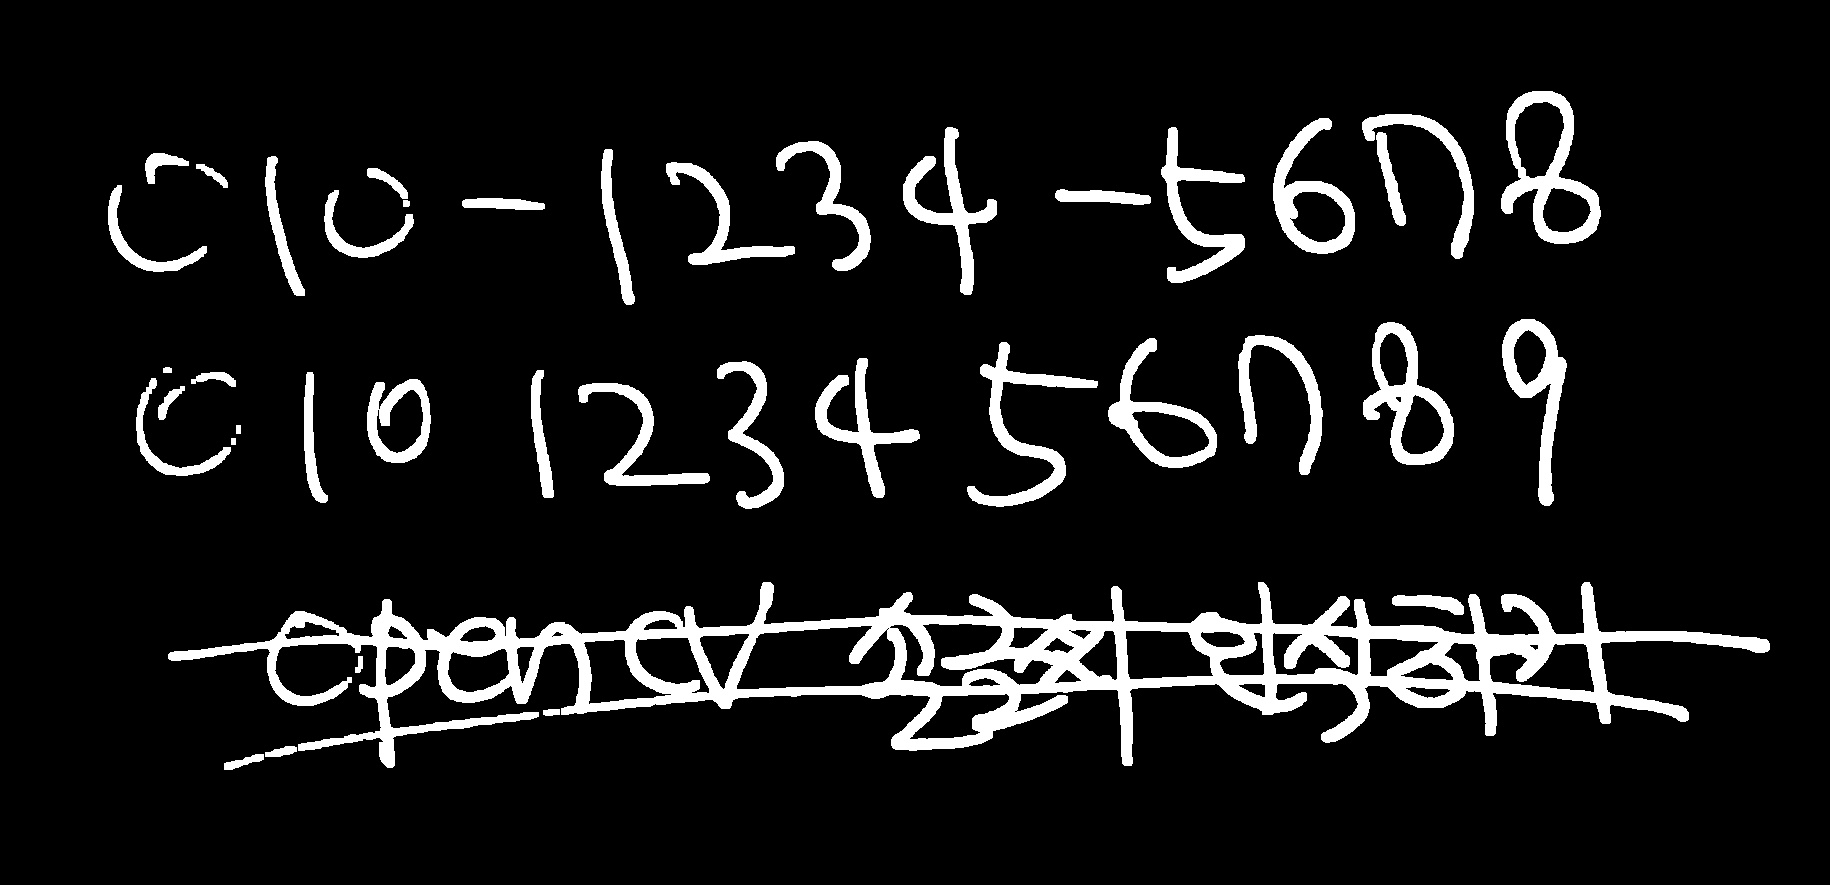 010-1234-5678
010 1234 56789
open cv